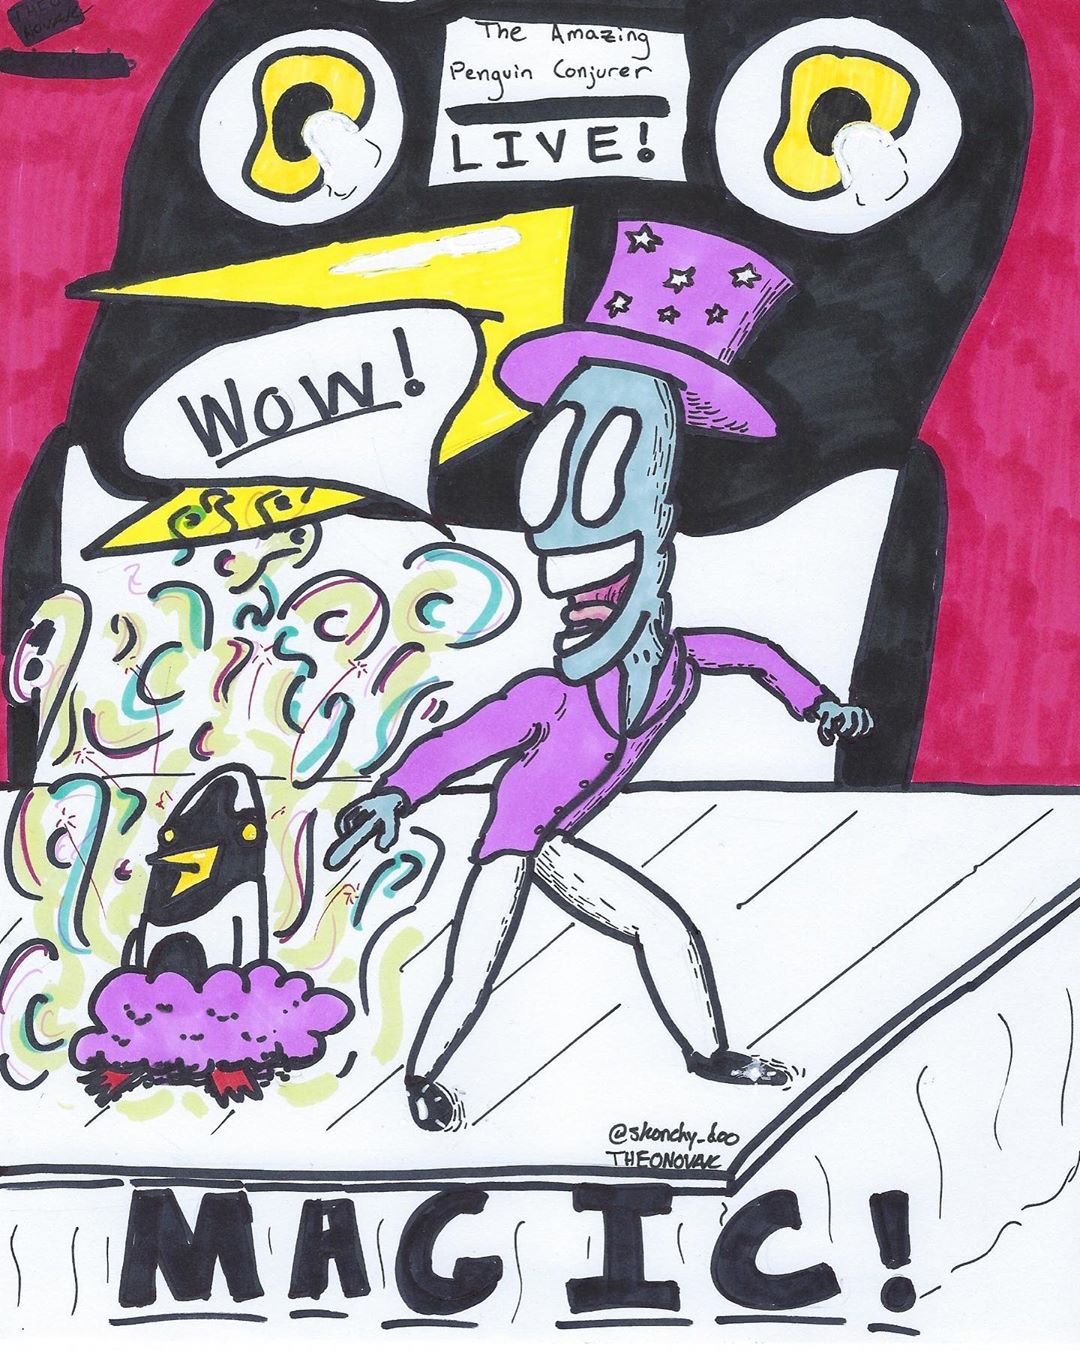 THEO
NOVAK
The Amazing
Penguin Conjurer
LIVE!
WOW!
@skonchy_doo
THEONOVAK
MAGIC!